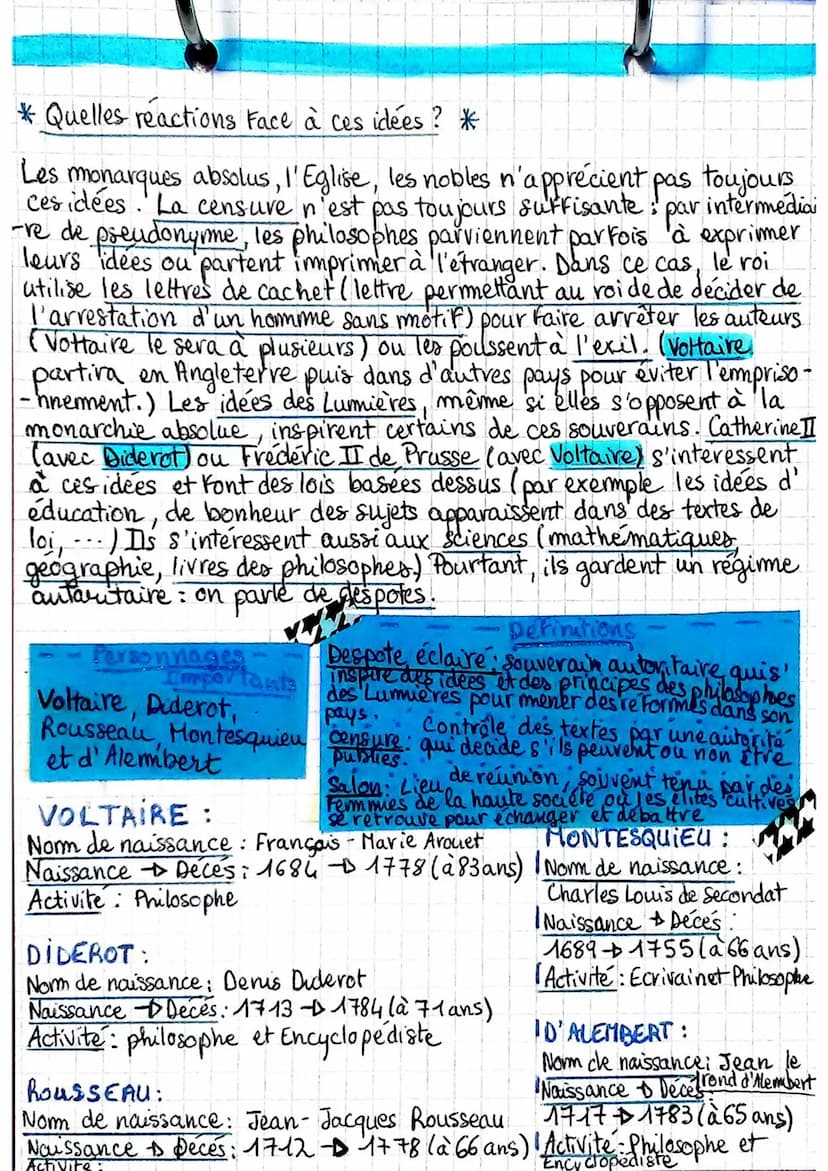 * Quelles réactions face à ces idées ? *
Les monarques absolus, l'Eglise, les nobles n'apprécient pas toujours
ces idées. La censure n'est pas toujours suffisante : par intermédiai
-re de pseudonyme, les philosophes parviennent parfois à exprimer
leurs idées ou partent imprimer à l'étranger. Dans ce cas, le roi
utilise les lettres de cachet (lettre permettant au roi de de décider de
l'arrestation d'un homme sans motif) pour faire arrêter les auteurs
(Voltaire le sera à plusieurs) ou les poussent à l'exil. (Voltaire
partira en Angleterre puis dans d'autres pays pour éviter l'empriso-
-nnement.) Les idées des Lumières, même si elles s'opposent à la
monarchie absolue, inspirent certains de ces souverains. Catherine II
(avec Diderot) ou Frédéric II de Prusse (avec Voltaire) s'interessent
à ces idées et font des lois basées dessus (par exemple les idées d'
éducation, de bonheur des sujets apparaissent dans des textes de
loi, ...) Ils s'intéressent aussi aux sciences (mathématiques,
géographie, livres des philosophes.) Pourtant, ils gardent un régime
autauritaire : on parle de despotes.
- - Personnages -
Importants
Voltaire, Diderot,
Rousseau, Montesquieu
et d'Alembert
- - - Définitions - - -
Despote éclairé : souverain autoritaire qui s'
inspire des idées et des principes des philosophes
des Lumières pour mener des réformes dans son
pays.
Censure : Contrôle des textes par une autorité
qui décide s'ils peuvent ou non être
publiés.
Salon : Lieu de réunion, souvent tenu par des
femmes de la haute société où les élites cultivées
se retrouve pour échanger et débattre
VOLTAIRE :
Nom de naissance : François-Marie Arouet
Naissance → Décés : 1684 → 1778 (à 83 ans)
Activité : Philosophe
DIDEROT :
Nom de naissance : Denis Diderot
Naissance → Décés : 1713 → 1784 (à 71 ans)
Activité : philosophe et Encyclopédiste
ROUSSEAU :
Nom de naissance : Jean-Jacques Rousseau
Naissance → Décés : 1712 → 1778 (à 66 ans)
Activité :
MONTESQUIEU :
Nom de naissance :
Charles Louis de Secondat
Naissance → Décés :
1689 → 1755 (à 66 ans)
Activité : Ecrivain et Philosophe
D'ALEMBERT :
Nom de naissance : Jean le
rond d'Alembert
Naissance → Décés
1717 → 1783 (à 65 ans)
Activité : Philosophe et
Encyclopédiste